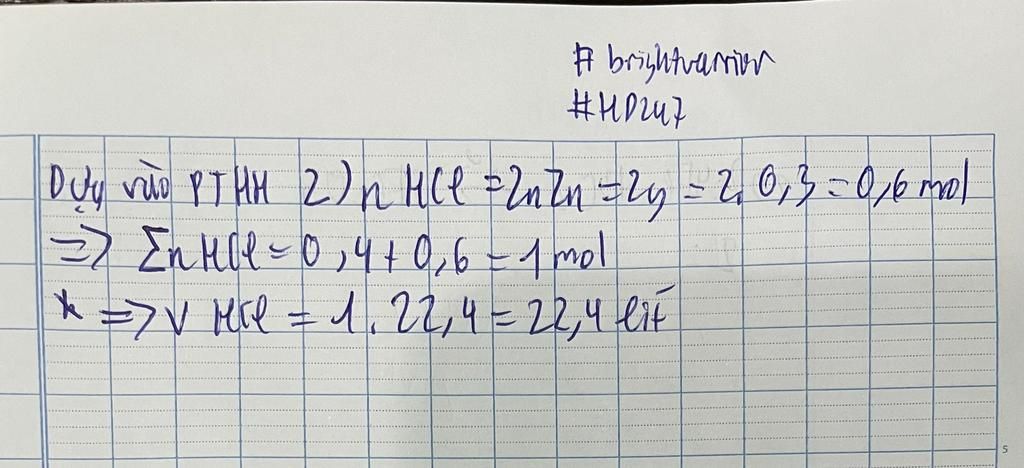 # brightwarrior
#HD247
Dựa vào PTHH 2) n HCl = 2nZn = 2y = 2.0,3 = 0,6 mol
=> ΣnHCl = 0,4 + 0,6 = 1 mol
* => V HCl = 1.22,4 = 22,4 lít
5